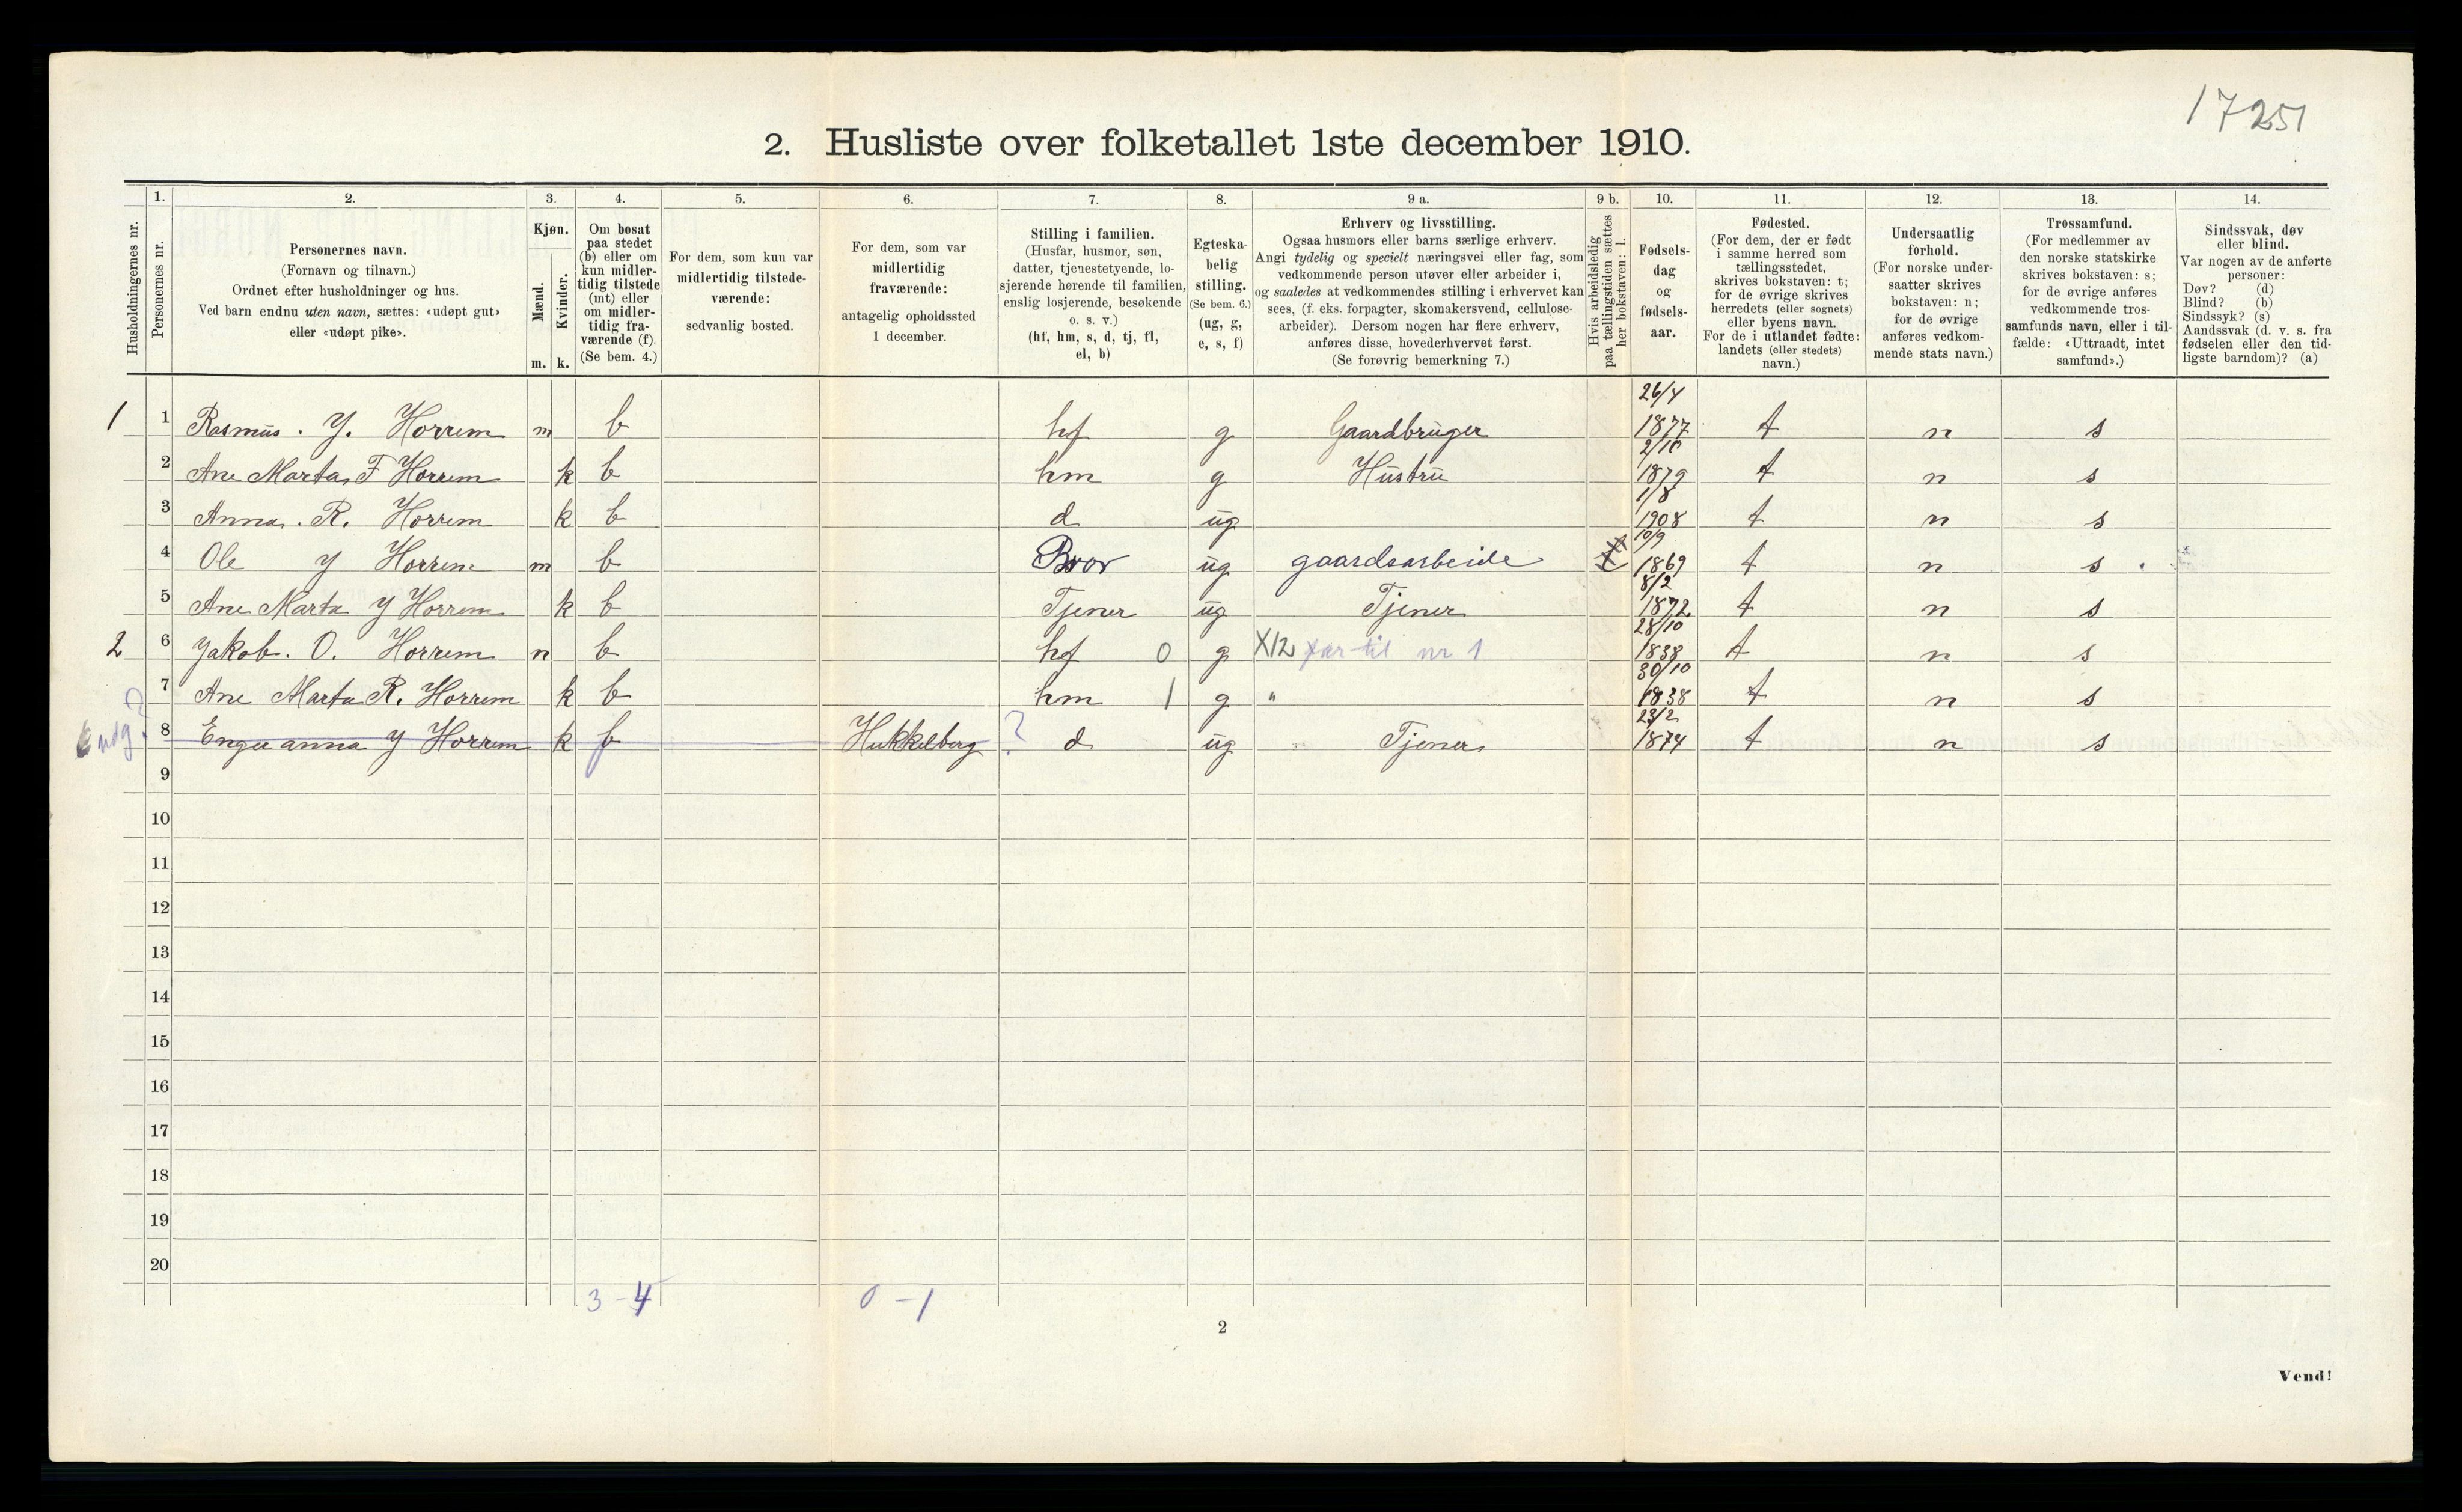 1725
2. Husliste over folketallet 1ste december 1910.
Husholdningernes nr.
1. Personernes nr.
2. Personernes navn. (Fornavn og tilnavn.) Ordnet efter husholdninger og hus. Ved barn endnu uten navn, sættes: «udøpt gut» eller «udøpt pike».
3. Kjøn. Mænd. m. Kvinder. k.
4. Om bosat paa stedet (b) eller om kun midlertidig tilstede (mt) eller om midlertidig fraværende (f). (Se bem. 4.)
5. For dem, som kun var midlertidig tilstedeværende: sedvanlig bosted.
6. For dem, som var midlertidig fraværende: antagelig opholdssted 1 december.
7. Stilling i familien. (Husfar, husmor, søn, datter, tjenestetyende, losjerende hørende til familien, enslig losjerende, besøkende o. s. v.) (hf, hm, s, d, tj, fl, el, b)
8. Egteskabelig stilling. (Se bem. 6.) (ug, g, e, s, f)
9 a. Erhverv og livsstilling. Ogsaa husmors eller barns særlige erhverv. Angi tydelig og specielt næringsvei eller fag, som vedkommende person utøver eller arbeider i, og saaledes at vedkommendes stilling i erhvervet kan sees, (f. eks. forpagter, skomakersvend, cellulosearbeider). Dersom nogen har flere erhverv, anføres disse, hovederhvervet først. (Se forøvrig bemerkning 7.)
9 b. Hvis arbeidsledig paa tællingstiden sættes her bokstaven: l.
10. Fødselsdag og fødselsaar.
11. Fødested. (For dem, der er født i samme herred som tællingsstedet, skrives bokstaven: t; for de øvrige skrives herredets (eller sognets) eller byens navn. For de i utlandet fødte: landets (eller stedets) navn.)
12. Undersaatlig forhold. (For norske undersaatter skrives bokstaven: n; for de øvrige anføres vedkommende stats navn.)
13. Trossamfund. (For medlemmer av den norske statskirke skrives bokstaven: s; for de øvrige anføres vedkommende trossamfunds navn, eller i tilfælde: «Uttraadt, intet samfund».)
14. Sindssvak, døv eller blind. Var nogen av de anførte personer: Døv? (d) Blind? (b) Sindssyk? (s) Aandssvak (d. v. s. fra fødselen eller den tidligste barndom)? (a)
1 1 Rasmus. Y. Horrem m b hf g Gaardbruger 26/4 1877 t n s
2 Ane Marta F Horrem k b hm g Hustru 2/10 1879 t n s
3 Anna. R. Horrem k b d ug 1/8 1908 t n s
4 Ole Y Horrem m b Bror ug gaardsarbeide 10/9 1869 t n s
5 Ane Marta Y Horrem k b Tjener ug Tjener 8/2 1872 t n s
2 6 Yakob. O. Horrem m b hf 0 g X12 far til nr 1 28/10 1838 t n s
7 Ane Marta R. Horrem k b hm 1 g " 30/10 1838 t n s
8 Enger anna Y Horrem k f Hukkelberg ? d ug Tjener 23/2 1874 t n s
9
10
11
12
13
14
15
16
17
18
19
20
3 - 4 0 - 1
2
Vend!